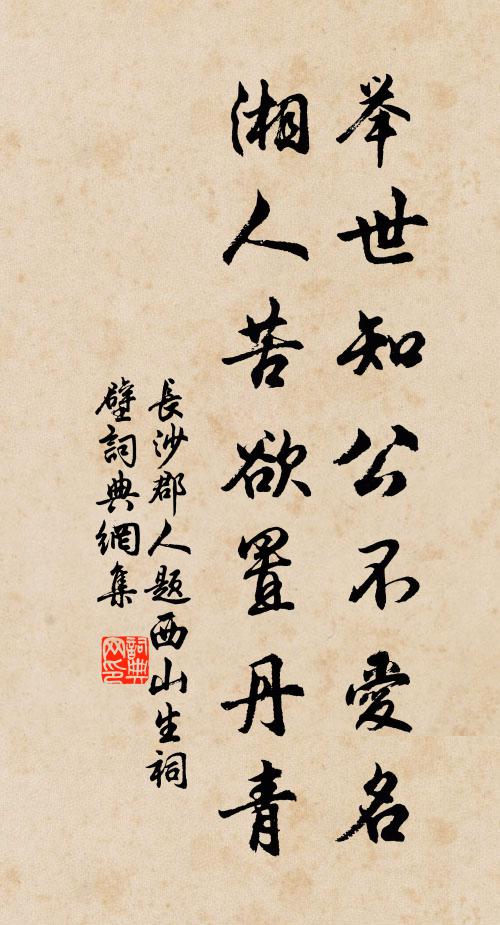 举世知公不愛名
湘人苦欲置丹青
長沙郡人题西山生祠
壁詞典網集
詞典网印